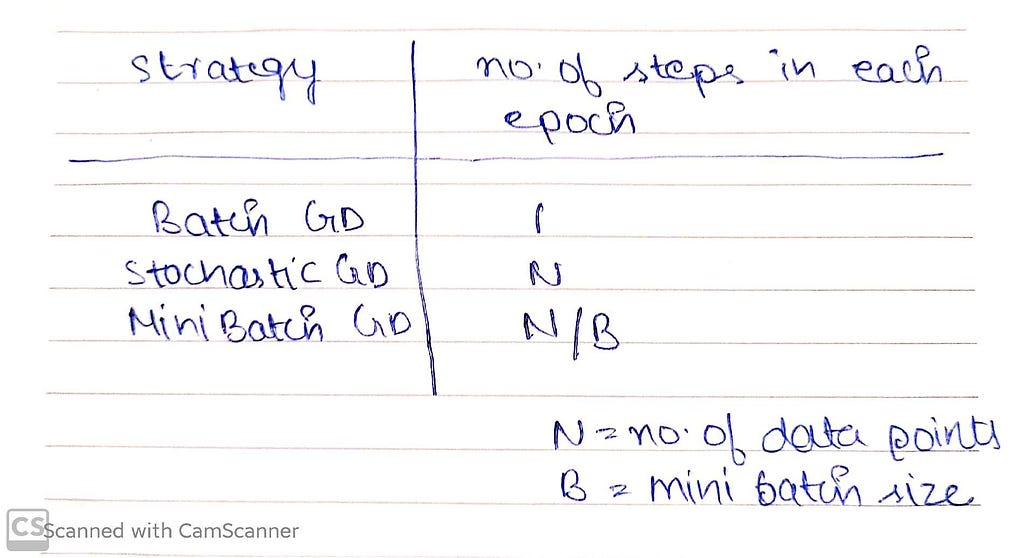 strategy no. of steps in each
epoch
Batch GD 1
Stochastic GD N
Mini Batch GD N/B
N = no. of data points
B = mini batch size
CS Scanned with CamScanner